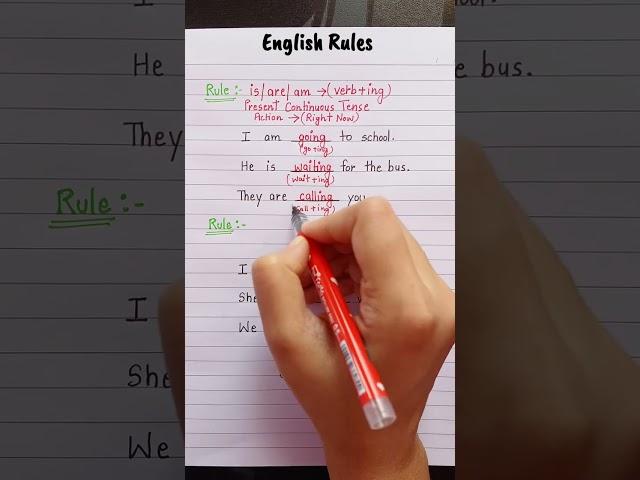 English Rules
Rule:- is/are/am →(verb+ing)
Present Continuous Tense
Action →(Right Now)
I am going to school.
(go+ing)
He is waiting for the bus.
(wait+ing)
They are calling you
(call+ing)
Rule:-
I
She
We